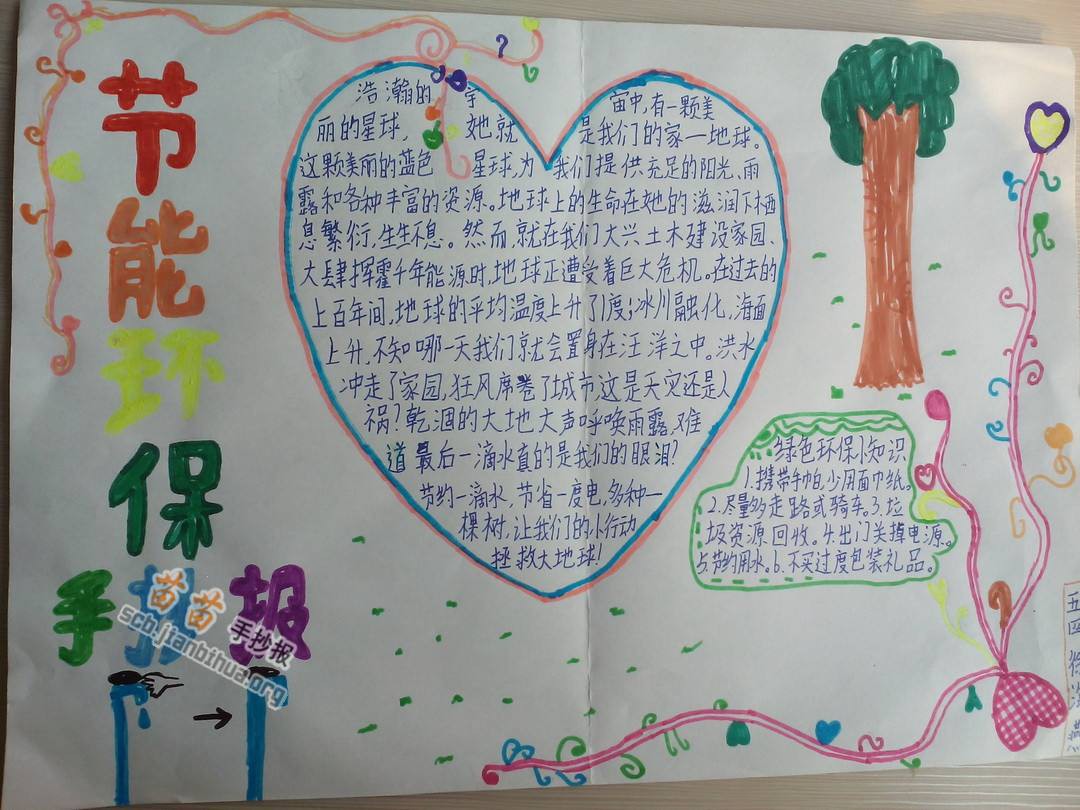 节能环保
手抄报
浩瀚的宇宙中,有一颗美
丽的星球,她就是我们的家一地球。
这颗美丽的蓝色星球,为我们提供充足的阳光、雨
露和各种丰富的资源。地球上的生命在她的滋润下栖
息繁衍,生生不息。然而,就在我们大兴土木建设家园、
大肆挥霍千年能源时,地球正遭受着巨大危机。在过去的
上百年间,地球的平均温度上升了1度;冰川融化,海面
上升,不知哪一天我们就会置身在汪洋之中。洪水
冲走了家园,狂风席卷了城市,这是天灾还是人
祸?乾涸的大地大声呼唤雨露,难
道最后一滴水真的是我们的眼泪?
节约一滴水,节省一度电,多种一
棵树,让我们的小行动
拯救大地球!
绿色环保小知识
1.携带手帕,少用面巾纸。
2.尽量多走路或骑车。3.垃
圾资源回收。4.出门关掉电源。
5.节约用水。6.不买过度包装礼品。
苗苗手抄报
scb.jianbihua.org
五四